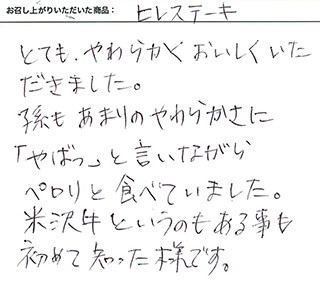 お召し上がりいただいた商品： ヒレステーキ
とても、やわらかくおいしくいた
だきました。
孫もあまりのやわらかさに
「やばっ」と言いながら
ペロリと食べていました。
米沢牛というのもある事も
初めて知った様です。